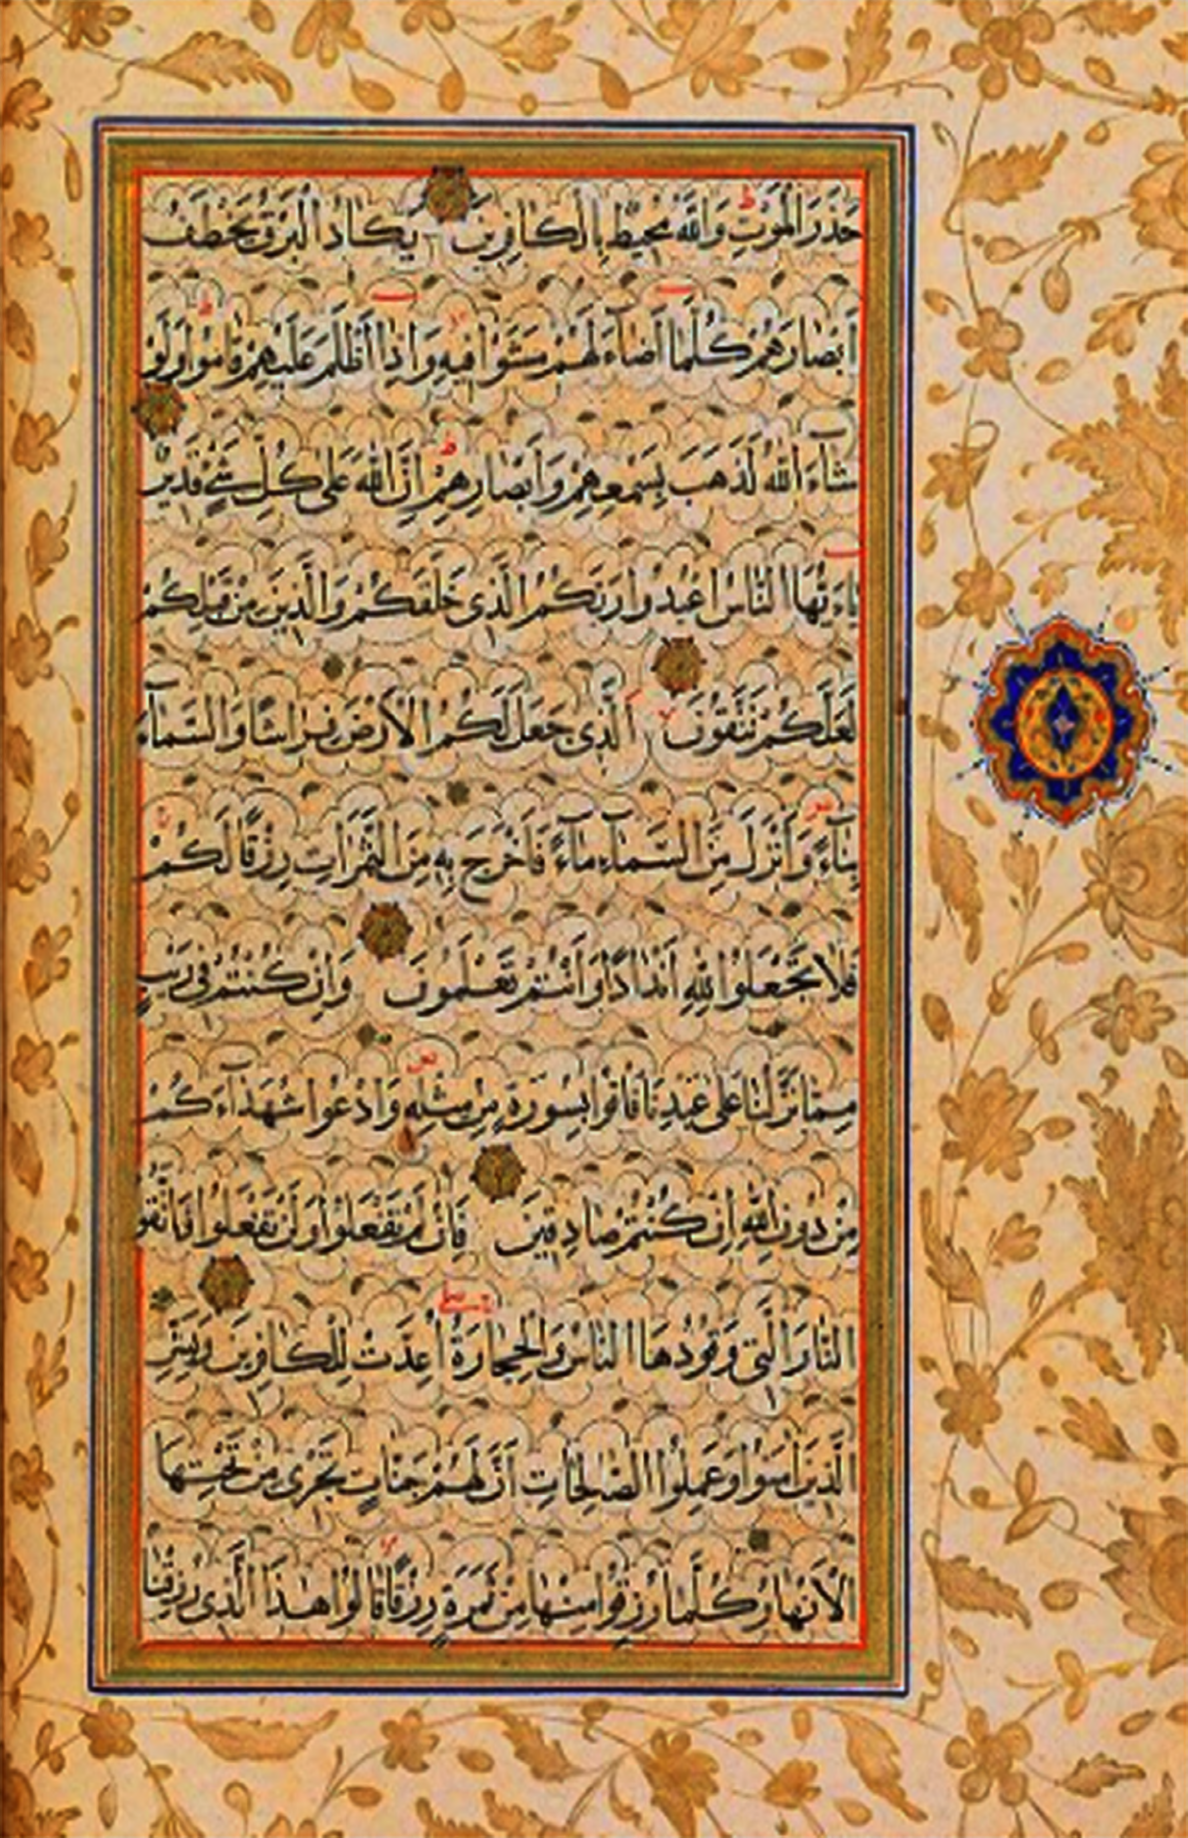 حَذَرَ الْمَوْتِ وَاللّٰهُ مُحِيطٌ بِالْكَافِرِينَ يَكَادُ الْبَرْقُ يَخْطَفُ
اَبْصَارَهُمْ كُلَّمَا اَضَاءَ لَهُمْ مَشَوْا فِيهِ وَاِذَا اَظْلَمَ عَلَيْهِمْ قَامُوا وَلَوْ
شَاءَ اللّٰهُ لَذَهَبَ بِسَمْعِهِمْ وَاَبْصَارِهِمْ اِنَّ اللّٰهَ عَلٰى كُلِّ شَيْءٍ قَدِيرٌ
يَاءَيُّهَا النَّاسُ اعْبُدُوا رَبَّكُمُ الَّذِى خَلَقَكُمْ وَالَّذِينَ مِنْ قَبْلِكُمْ
لَعَلَّكُمْ تَتَّقُونَ اَلَّذِى جَعَلَ لَكُمُ الْاَرْضَ فِرَاشًا وَالسَّمَاءَ
بِنَاءً وَاَنْزَلَ مِنَ السَّمَاءِ مَاءً فَاَخْرَجَ بِهِ مِنَ الثَّمَرَاتِ رِزْقًا لَكُمْ
فَلَا تَجْعَلُوا لِلّٰهِ اَنْدَادًا وَاَنْتُمْ تَعْلَمُونَ وَاِنْ كُنْتُمْ فِى رَيْبٍ
مِمَّا نَزَّلْنَا عَلٰى عَبْدِنَا فَاْتُوا بِسُورَةٍ مِنْ مِثْلِهِ وَادْعُوا شُهَدَاءَكُمْ
مِنْ دُونِ اللّٰهِ اِنْ كُنْتُمْ صَادِقِينَ فَاِنْ لَمْ تَفْعَلُوا وَلَنْ تَفْعَلُوا فَاتَّقُوا
النَّارَ الَّتِى وَقُودُهَا النَّاسُ وَالْحِجَارَةُ اُعِدَّتْ لِلْكَافِرِينَ وَبَشِّرِ
الَّذِينَ اٰمَنُوا وَعَمِلُوا الصَّالِحَاتِ اَنَّ لَهُمْ جَنَّاتٍ تَجْرِى مِنْ تَحْتِهَا
الْاَنْهَارُ كُلَّمَا رُزِقُوا مِنْهَا مِنْ ثَمَرَةٍ رِزْقًا قَالُوا هٰذَا الَّذِى رُزِقْنَا